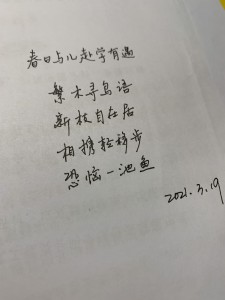 春日与儿赴学有遇
繁木寻鸟语
新枝自在居
相携轻移步
恐恼一池鱼
2021.3.19